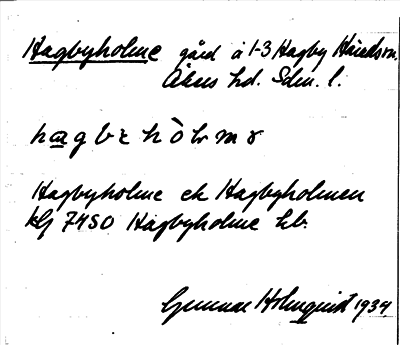 Hagbyholme gård å 1-3 Hagby Härads sn.
Åkers hd. Sdm. l.
Hagbyholme ek Hagbyholmen
kbl 7450 Hagbyholme hb.
Gunnar Holmquist 1934